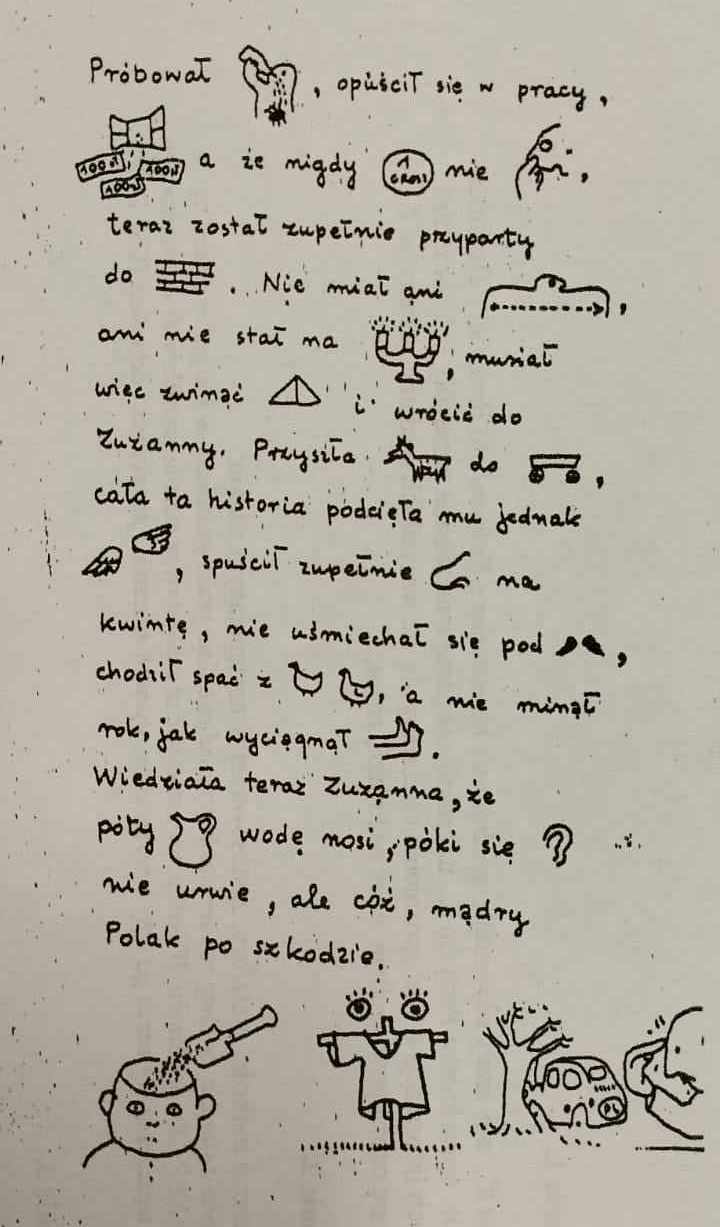 Próbował , opuścił się w pracy,
100 zł 100 zł 100 zł a że nigdy 1 GROSZ nie ,
teraz został zupełnie przyparty
do . Nie miał ani ,
ani nie stał na , musiał
więc zwinąć i wrócić do
Zuzanny. Przyszła do ,
cała ta historia podcięła mu jednak
, spuścił zupełnie na
kwintę, nie uśmiechał się pod ,
chodził spać z , a nie minął
rok, jak wyciągnął .
Wiedziała teraz Zuzanna, że
póty wodę nosi, póki się
nie urwie, ale cóż, mądry
Polak po szkodzie.
PL